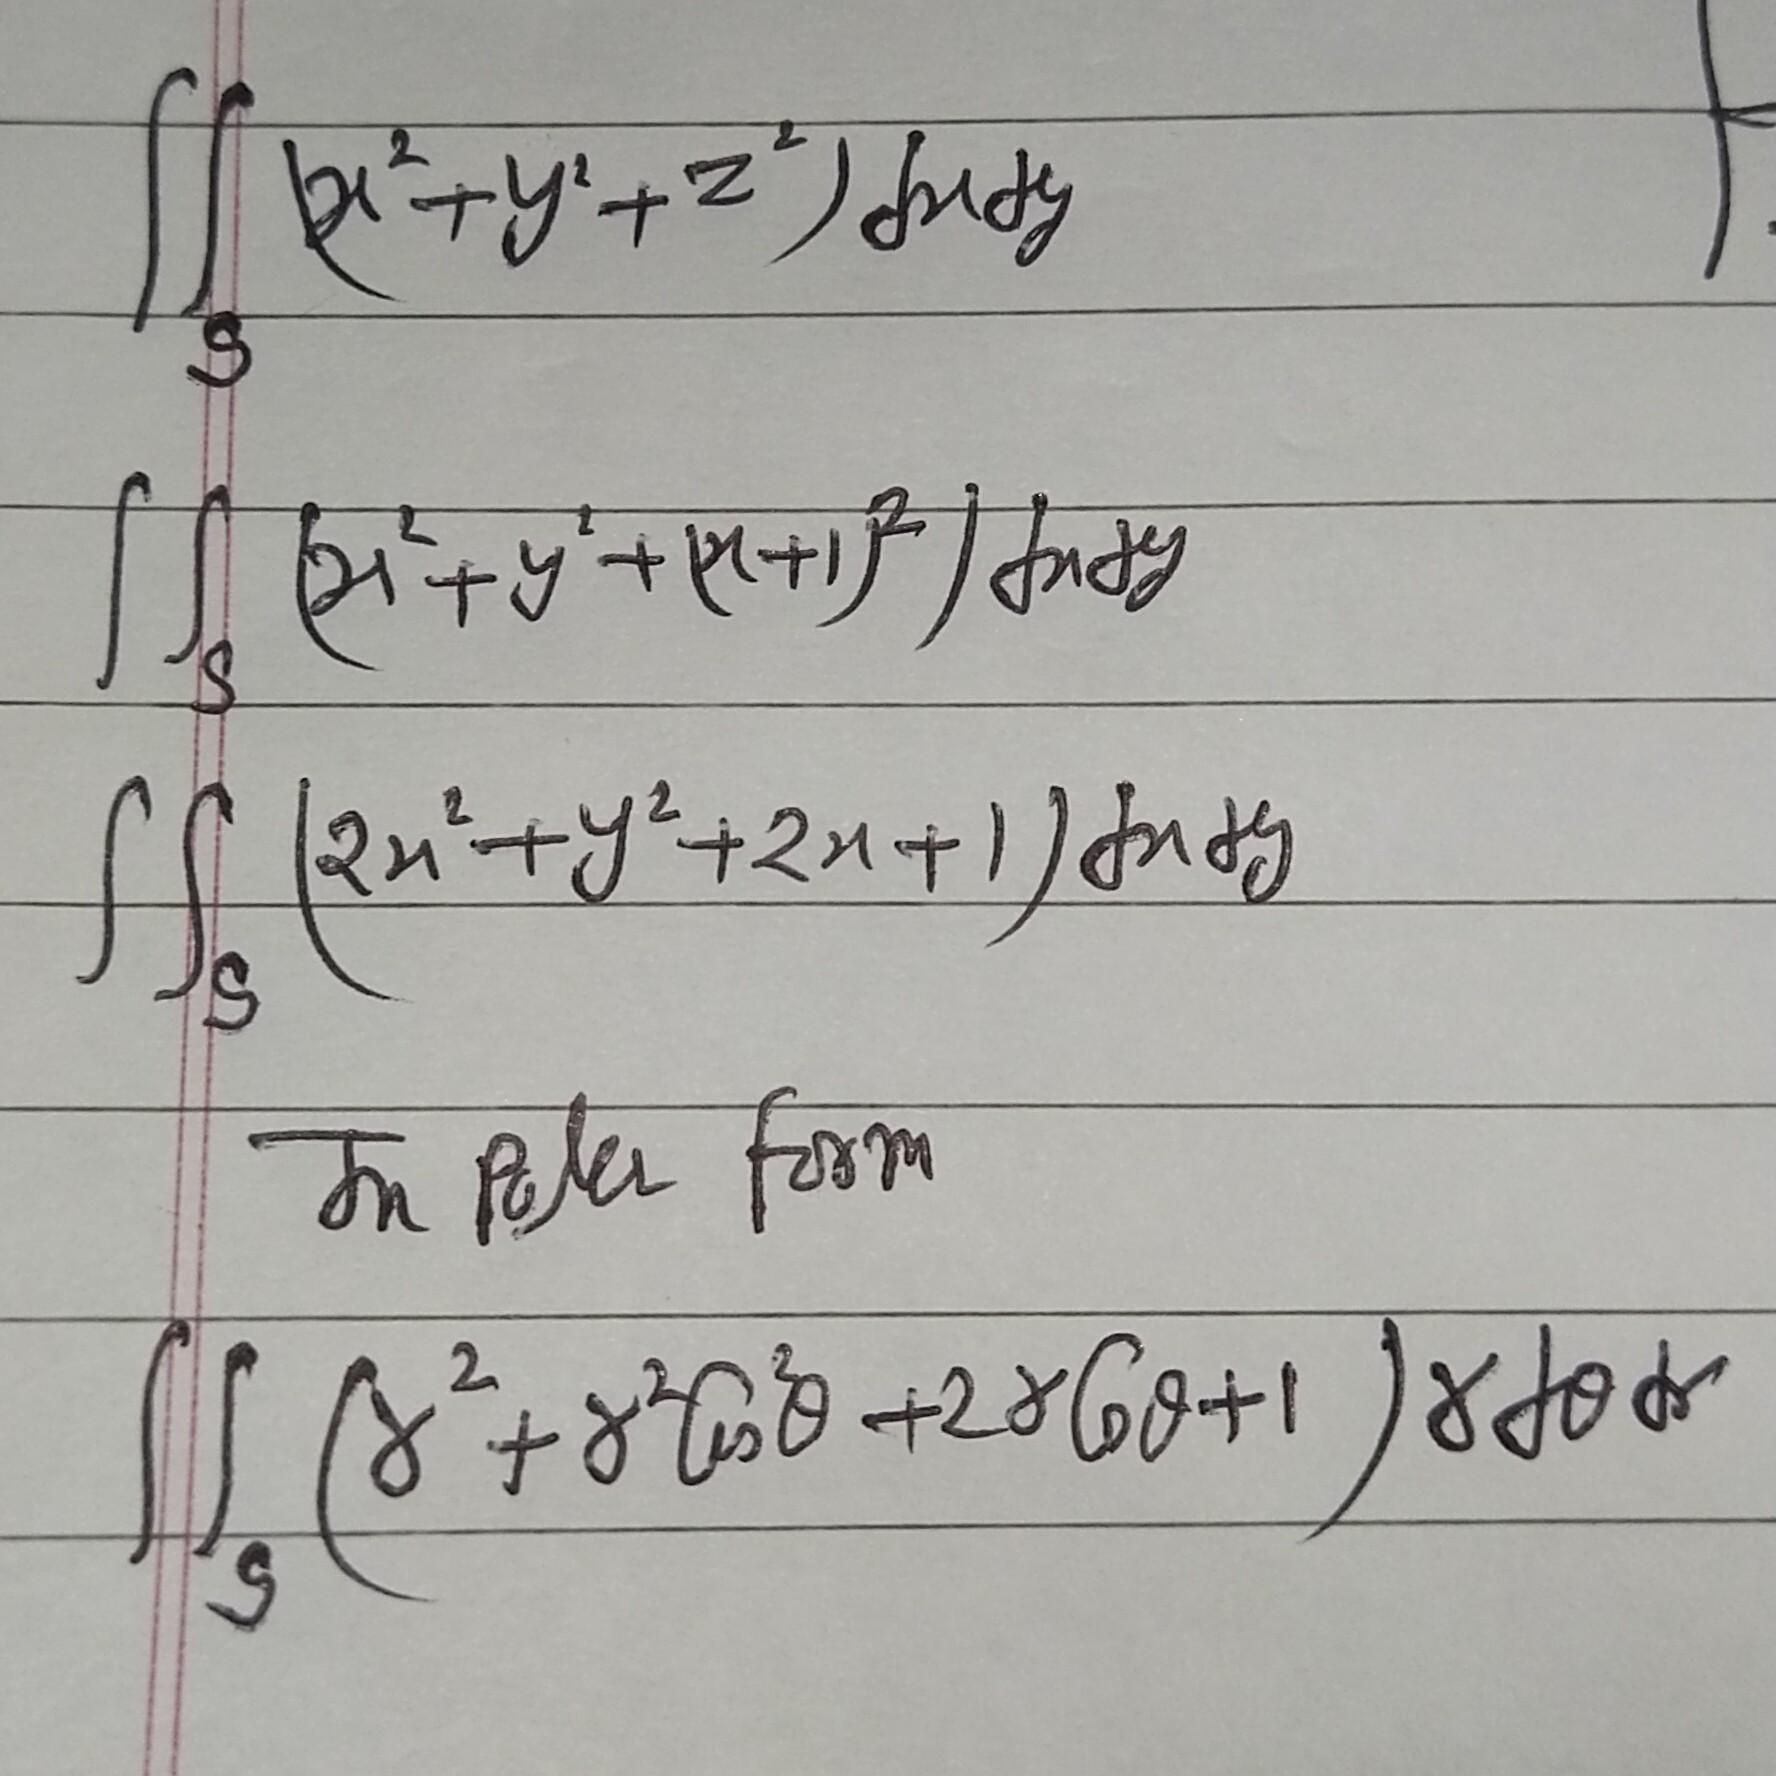 ∫∫_S (x²+y²+z²) dx dy
∫∫_S (x²+y²+(x+1)²) dx dy
∫∫_S (2x²+y²+2x+1) dx dy
In Polar form
∫∫_S (r²+r²Cos²θ+2rCosθ+1) r dθ dr